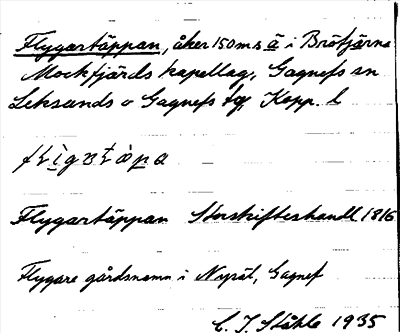 Flygartäppan, åker 150 m s ä i Brötjärna
Mockfjärds kapellag, Gagnefs sn
Leksands o Gagnefs tg, Kopp. l
Flygartäppan Storskifteshandl. 1816
Flygare gårdsnamn i Nysät, Gagnef
C. I. Ståhle 1935